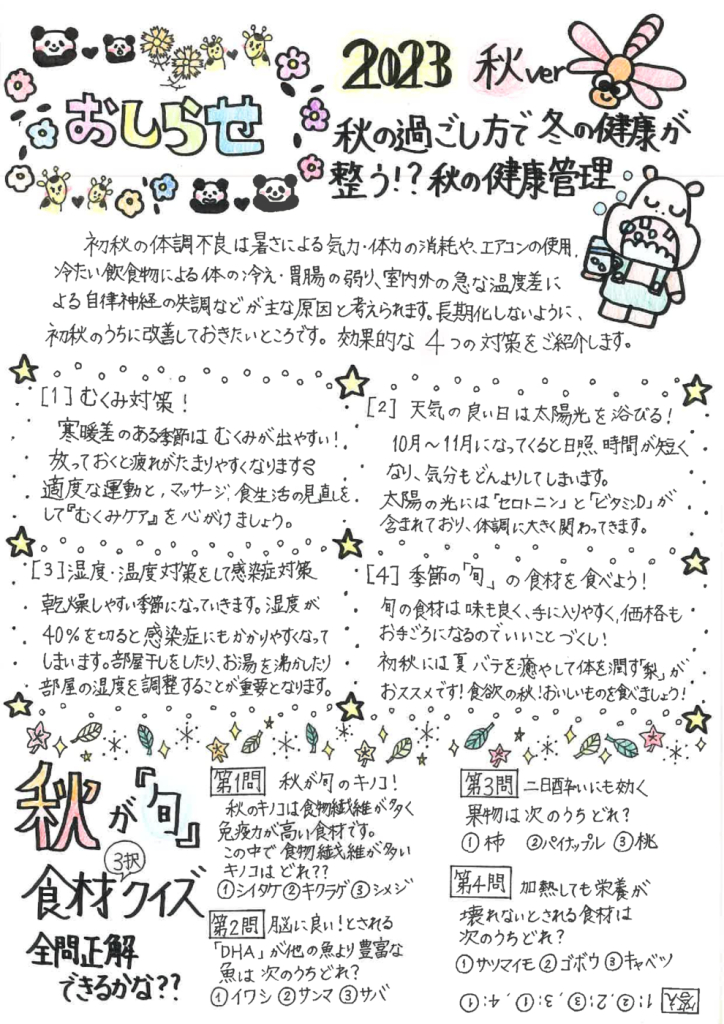 おしらせ
2023 秋ver
秋の過ごし方で冬の健康が
整う!?秋の健康管理
初秋の体調不良は暑さによる気力・体力の消耗や、エアコンの使用、
冷たい飲食物による体の冷え・胃腸の弱り、室内外の急な温度差に
よる自律神経の失調などが主な原因と考えられます。長期化しないように、
初秋のうちに改善しておきたいところです。効果的な4つの対策をご紹介します。
[1] むくみ対策!
寒暖差のある季節はむくみが出やすい!
放っておくと疲れがたまりやすくなります
適度な運動と、マッサージ、食生活の見直しを
して『むくみケア』を心がけましょう。
[2] 天気の良い日は太陽光を浴びる!
10月〜11月になってくると日照時間が短く
なり、気分もどんよりしてしまいます。
太陽の光には「セロトニン」と「ビタミンD」が
含まれており、体調に大きく関わってきます。
[3] 湿度・温度対策をして感染症対策
乾燥しやすい季節になっていきます。湿度が
40%を切ると感染症にもかかりやすくなって
しまいます。部屋干しをしたり、お湯を沸かしたり
部屋の湿度を調整することが重要となります。
[4] 季節の「旬」の食材を食べよう!
旬の食材は味も良く、手に入りやすく、価格も
お手ごろになるのでいいことづくし!
初秋には夏バテを癒やして体を潤す「梨」が
おススメです!食欲の秋!おいしいものを食べましょう!
秋が『旬』
3択
食材クイズ
全問正解
できるかな??
第1問 秋が旬のキノコ!
秋のキノコは食物繊維が多く
免疫力が高い食材です。
この中で食物繊維が多い
キノコはどれ??
①シイタケ②キクラゲ③シメジ
第2問 脳に良い!とされる
「DHA」が他の魚より豊富な
魚は次のうちどれ?
①イワシ②サンマ③サバ
第3問 二日酔いにも効く
果物は次のうちどれ?
①柿 ②パイナップル ③桃
第4問 加熱しても栄養が
壊れないとされる食材は
次のうちどれ?
①サツマイモ②ゴボウ③キャベツ
答え 1:②、2:③、3:①、4:①